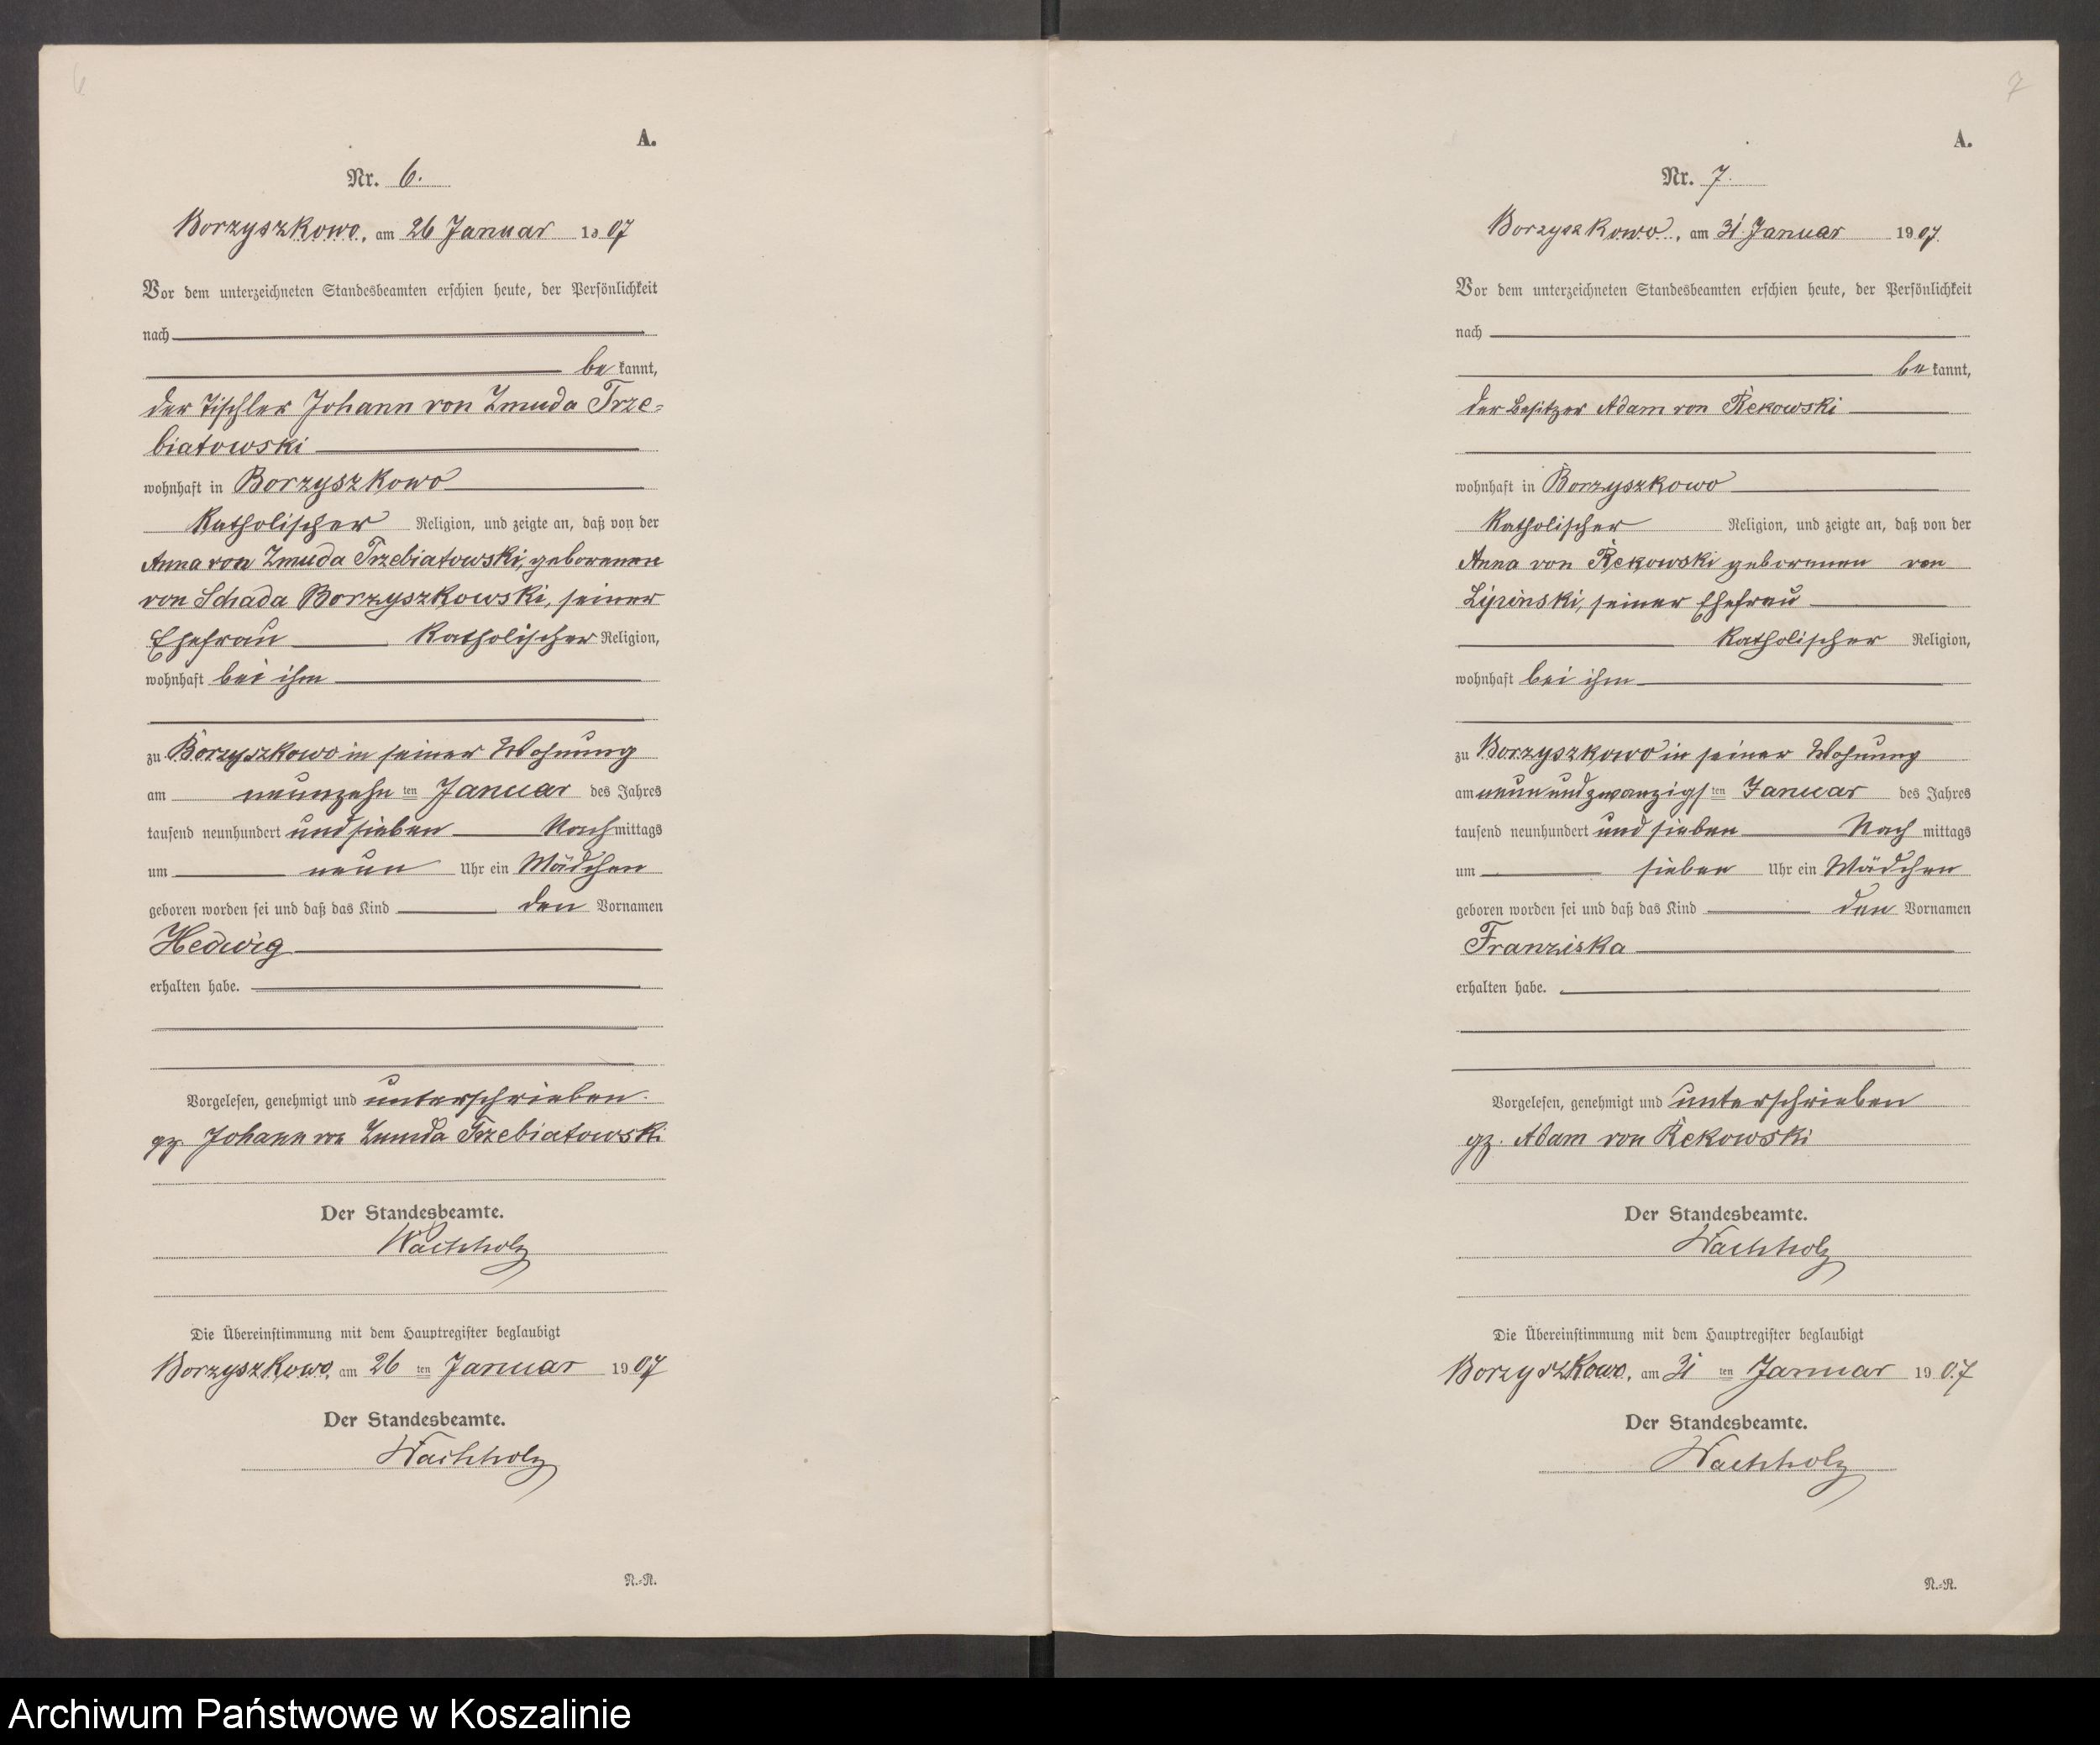 6
A.
Nr. 6.
Borzyszkowo, am 26 Januar 1907
Vor dem unterzeichneten Standesbeamten erschien heute, der Persönlichkeit
nach
be kannt,
der Tischler Johann von Zmuda Trze-
biatowski
wohnhaft in Borzyszkowo
Katholischer Religion, und zeigte an, daß von der
Anna von Zmuda Trzebiatowski, geborenen
von Schada Borzyszkowski, seiner
Ehefrau Katholischer Religion,
wohnhaft bei ihm
zu Borzyszkowo in seiner Wohnung
am neunzehn ten Januar des Jahres
tausend neunhundert und sieben Nachmittags
um neun Uhr ein Mädchen
geboren worden sei und daß das Kind den Vornamen
Hedwig
erhalten habe.
Vorgelesen, genehmigt und unterschrieben.
gz. Johann von Zmuda Trzebiatowski
Der Standesbeamte.
Wachholz
Die Übereinstimmung mit dem Hauptregister beglaubigt
Borzyszkowo, am 26 ten Januar 1907
Der Standesbeamte.
Wachholz
N.-R.
7
A.
Nr. 7.
Borzyszkowo, am 31. Januar 1907.
Vor dem unterzeichneten Standesbeamten erschien heute, der Persönlichkeit
nach
be kannt,
der Besitzer Adam von Rekowski
wohnhaft in Borzyszkowo
Katholischer Religion, und zeigte an, daß von der
Anna von Rekowski geborenen von
Lipinski, seiner Ehefrau
Katholischer Religion,
wohnhaft bei ihm
zu Borzyszkowo in seiner Wohnung
am neunundzwanzigs ten Januar des Jahres
tausend neunhundert und sieben Nach mittags
um sieben Uhr ein Mädchen
geboren worden sei und daß das Kind den Vornamen
Franziska
erhalten habe.
Vorgelesen, genehmigt und unterschrieben
gz. Adam von Rekowski
Der Standesbeamte.
Wachholz
Die Übereinstimmung mit dem Hauptregister beglaubigt
Borzyszkowo, am 31 ten Januar 1907
Der Standesbeamte.
Wachholz
N.-R.
Archiwum Państwowe w Koszalinie